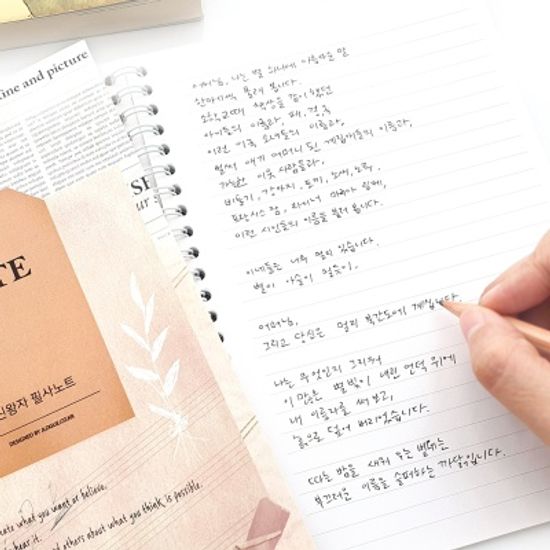 ine and picture
TE
왕자 필사노트
DESIGNED BY JUNGLE.CO.KR
eate what you want or believe.
hear it.
d others about what you think is possible.
어머님, 나는 별 하나에 아름다운 말
한마디씩 불러 봅니다.
소학교때 책상을 같이 했던
아이들의 이름과, 패, 경, 옥
이런 이국 소녀들의 이름과,
벌써 애기 어머니 된 계집애들의 이름과,
가난한 이웃 사람들과,
비둘기, 강아지, 토끼, 노새, 노루,
프랑시스 잠, 라이너 마리아 릴케,
이런 시인들의 이름을 불러 봅니다.
이네들은 너무 멀리 있습니다.
별이 아슬히 멀듯이,
어머님,
그리고 당신은 멀리 북간도에 계십니다.
나는 무엇인지 그리워
이 많은 별빛이 내린 언덕 위에
내 이름자를 써 보고,
흙으로 덮어 버리었습니다.
따는 밤을 새워 우는 벌레는
부끄러운 이름을 슬퍼하는 까닭입니다.